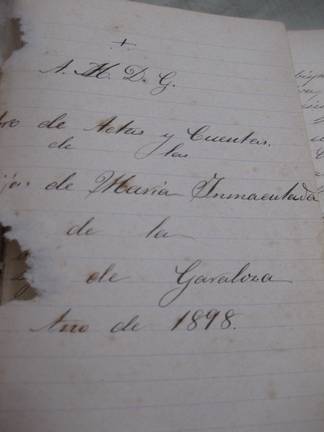 A. M. D. G.
de Actas y Cuentas.
de las
de María Inmaculada
de la
de Garaloza
Año de 1898.